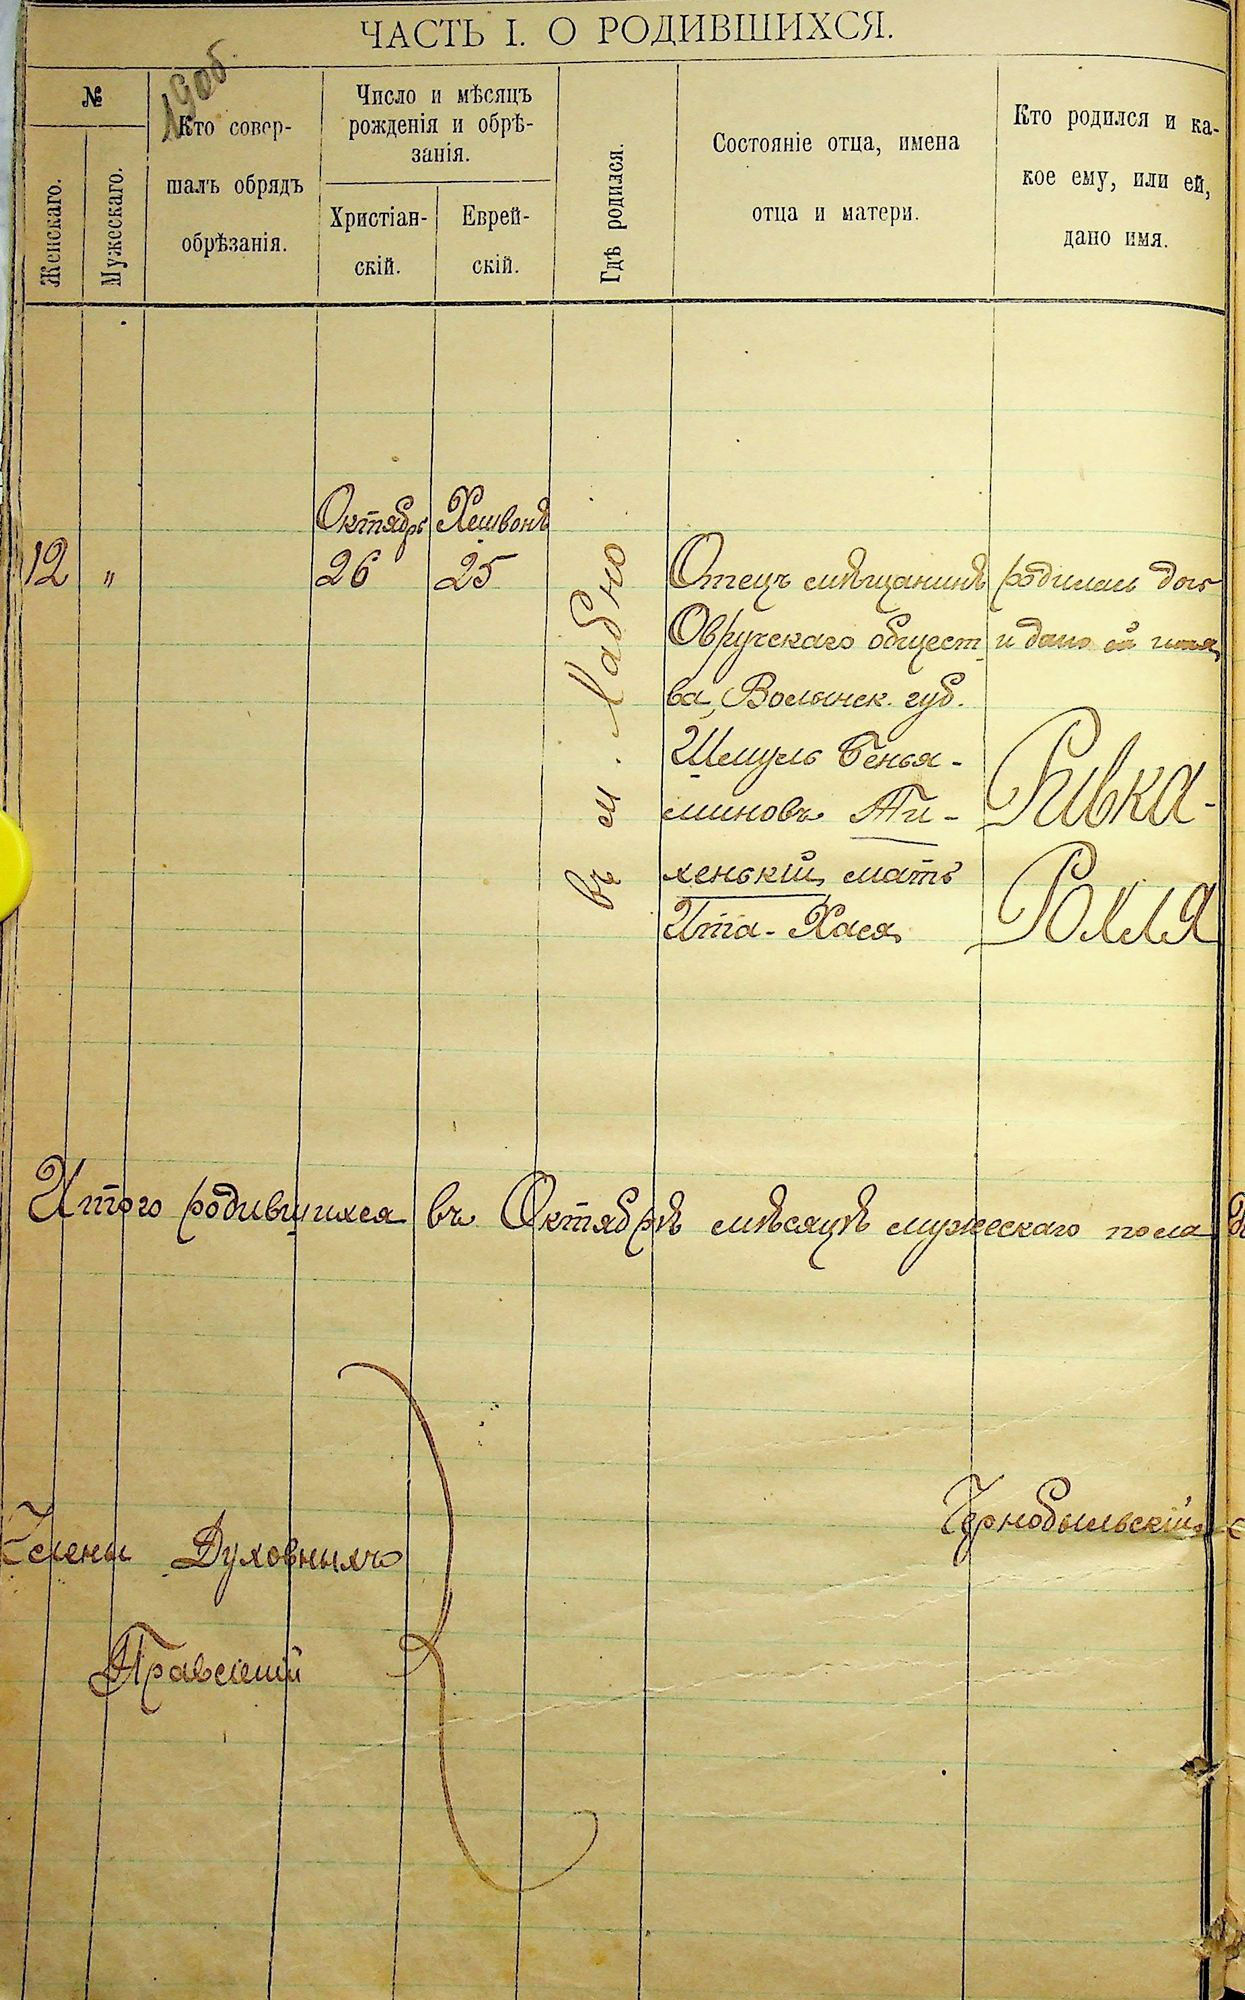 ЧАСТЬ I. О РОДИВШИХСЯ.
№
Женскаго.
Мужескаго.
Кто совер-
шалъ обрядъ
обрѣзанія.
Число и мѣсяцъ
рожденія и обрѣ-
занія.
Христіан-
скій.
Еврей-
скій.
Гдѣ родился.
Состояніе отца, имена
отца и матери.
Кто родился и ка-
кое ему, или ей,
дано имя.
Октябрь Хешвонъ
12 " 26 25
въ м. Хабно
Отецъ мѣщанинъ
Овручскаго общест-
ва, Волынск. губ.
Шмуль Бенья-
миновъ Ти-
хенькій, мать
Ита-Хася
родилась дочь
и дано ей имя
Ривка-
Рохля
Итого родившихся въ Октябрѣ мѣсяцѣ мужескаго пола
Чернобыльскій
Члены Духовныхъ
Правленій